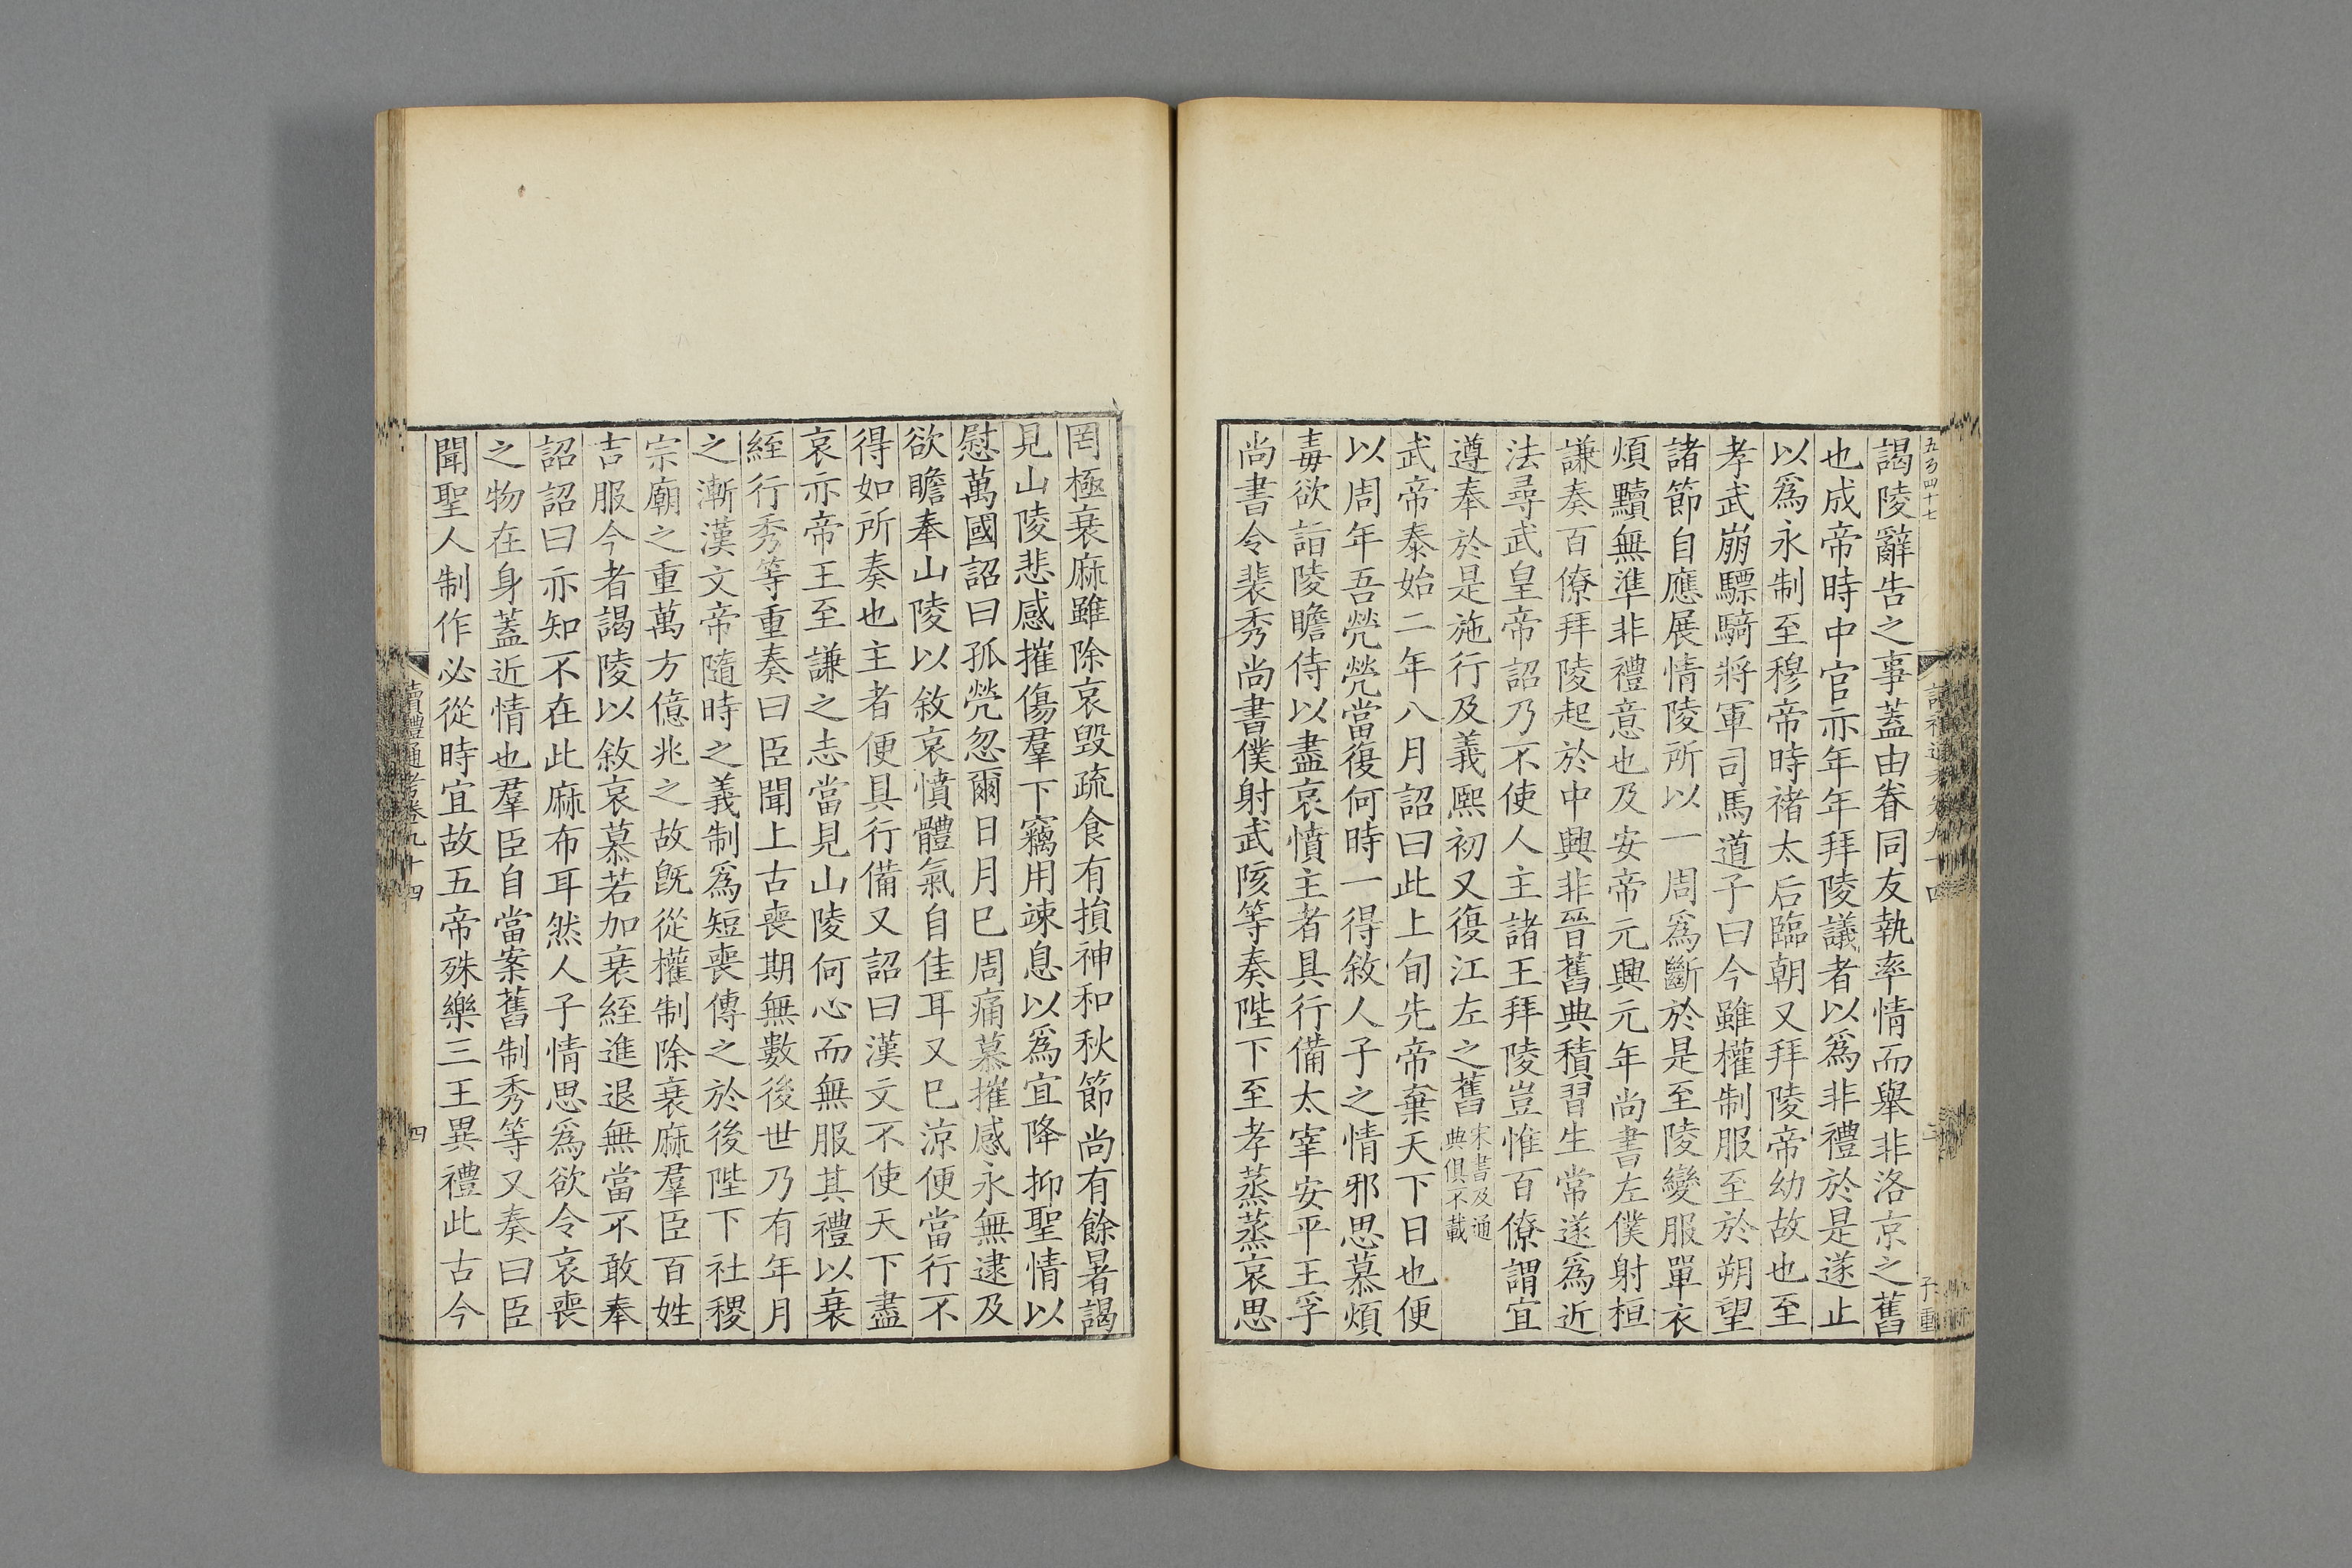 五百四十七
謁陵辭告之事蓋由眷同友執率情而舉非洛京之舊
也成帝時中官亦年年拜陵議者以爲非禮於是遂止
以爲永制至穆帝時褚太后臨朝又拜陵帝幼故也至
孝武崩驃騎將軍司馬道子曰今雖權制服至於朔望
諸節自應展情陵所以一周爲斷於是至陵變服單衣
煩黷無準非禮意也及安帝元興元年尚書左僕射桓
謙奏百僚拜陵起於中興非晉舊典積習生常遂爲近
法尋武皇帝詔乃不使人主諸王拜陵豈惟百僚謂宜
遵奉於是施行及義熙初又復江左之舊宋書及通典俱不載
武帝泰始二年八月詔曰此上旬先帝棄天下日也便
以周年吾煢煢當復何時一得敘人子之情邪思慕煩
毒欲詣陵瞻侍以盡哀憤主者具行備太宰安平王孚
尚書令裴秀尚書僕射武陔等奏陛下至孝蒸蒸哀思
罔極衰麻雖除哀毀疏食有損神和秋節尚有餘暑謁
見山陵悲感摧傷羣下竊用竦息以爲宜降抑聖情以
慰萬國詔曰孤煢忽爾日月已周痛慕摧感永無逮及
欲瞻奉山陵以敘哀憤體氣自佳耳又已涼便當行不
得如所奏也主者便具行備又詔曰漢文不使天下盡
哀亦帝王至謙之志當見山陵何心而無服其禮以衰
絰行秀等重奏曰臣聞上古喪期無數後世乃有年月
之漸漢文帝隨時之義制爲短喪傳之於後陛下社稷
宗廟之重萬方億兆之故旣從權制除衰麻羣臣百姓
吉服今者謁陵以敘哀慕若加衰絰進退無當不敢奉
詔詔曰亦知不在此麻布耳然人子情思爲欲令哀喪
之物在身蓋近情也羣臣自當案舊制秀等又奏曰臣
聞聖人制作必從時宜故五帝殊樂三王異禮此古今
讀禮通考卷九十四
四